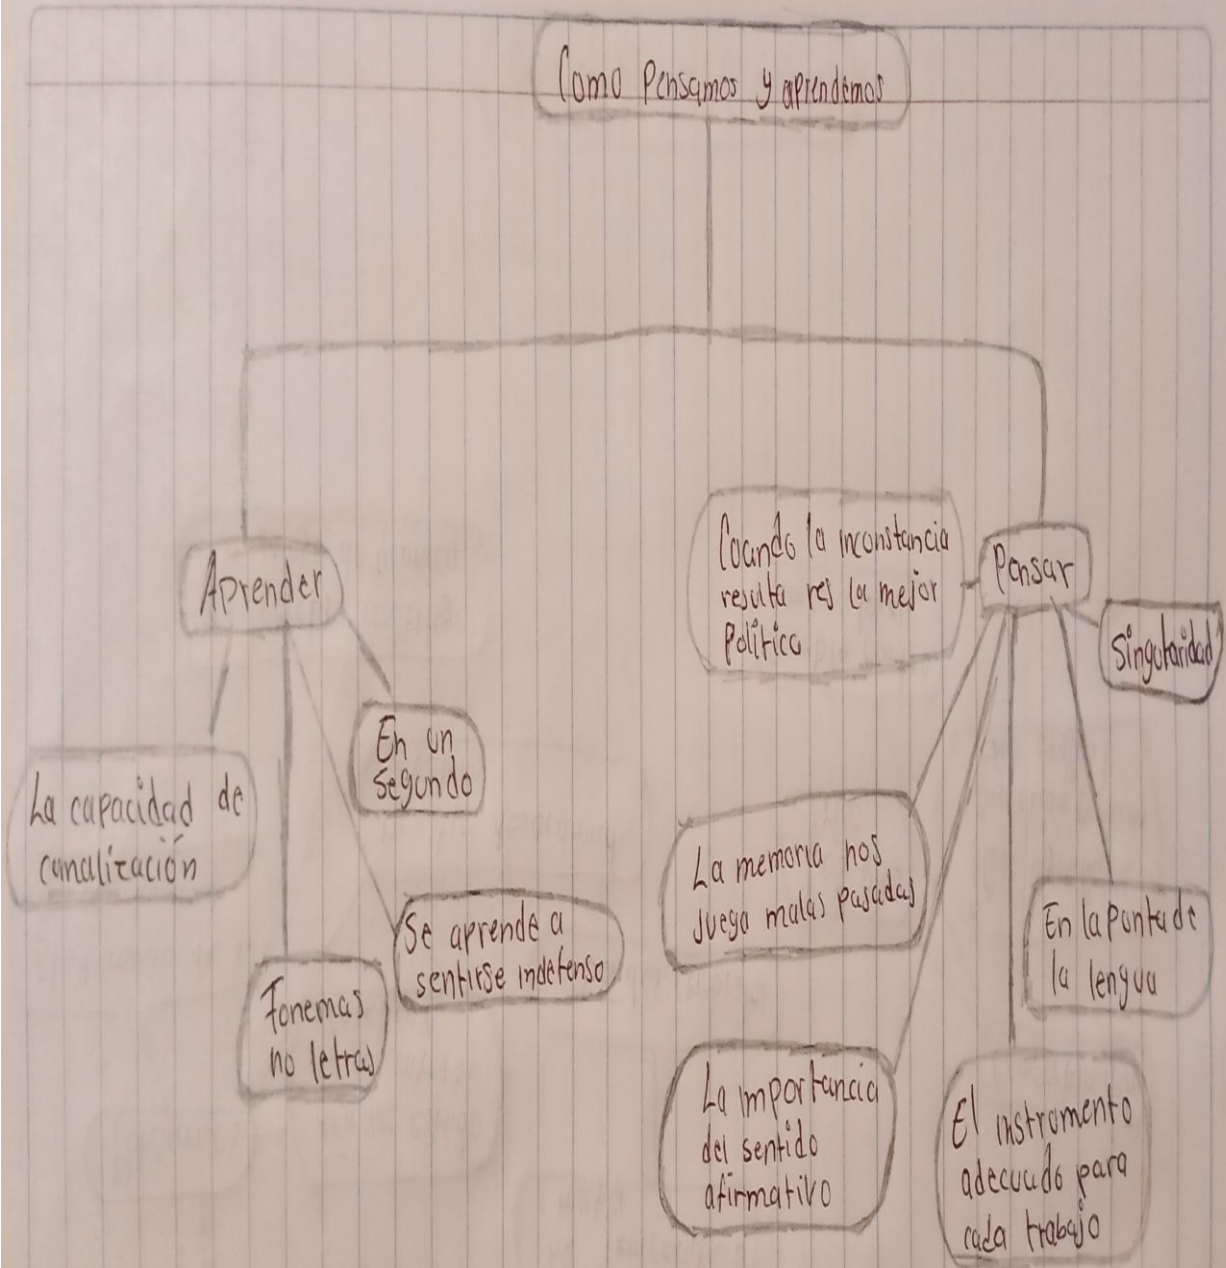 Como Pensamos y aprendemos
Aprender
La capacidad de
canalización
Fonemas
no letras
Se aprende a
sentirse indefenso
En un
segundo
Pensar
Cuando la inconstancia
resulta res la mejor
Política
La memoria nos
juega malas pasadas
La importancia
del sentido
afirmativo
El instrumento
adecuado para
cada trabajo
En la punta de
la lengua
Singularidad